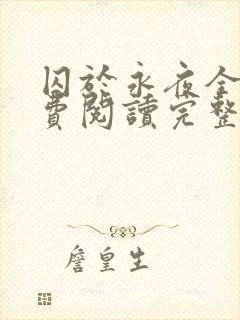 囚於永夜全
費閱讀完整
詹皇生